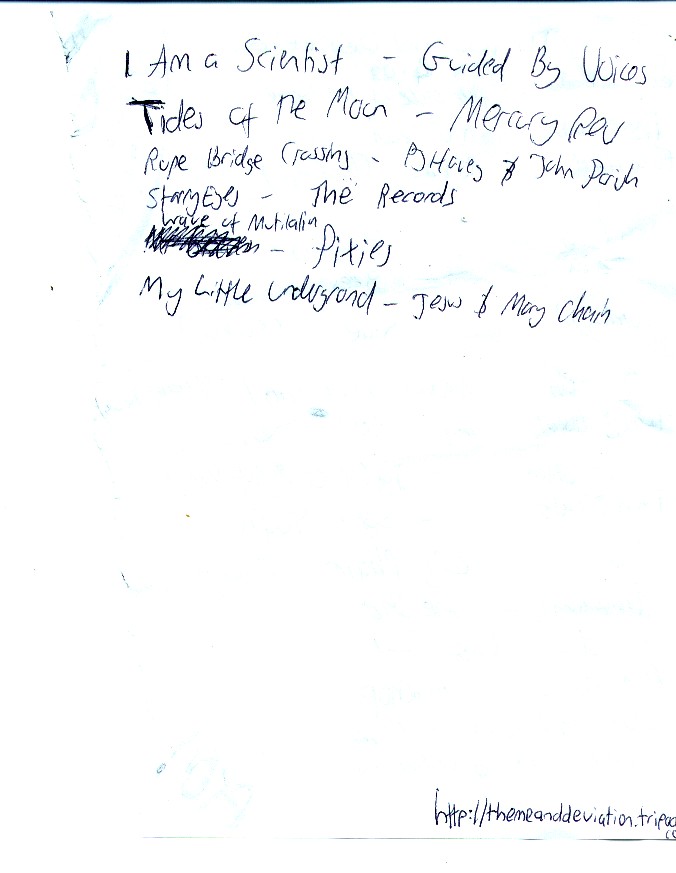 I Am a Scientist - Guided By Voices
Tides of the Moon - Mercury Rev
Rope Bridge Crossing - PJ Harvey & John Parish
Starry Eyes - The Records
Wave of Mutilation
- Pixies
My Little Underground - Jesus & Mary Chain
http://themeanddeviation.tripod